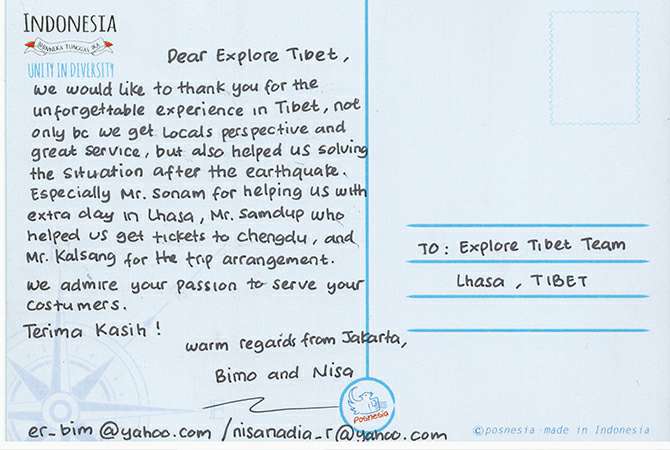 INDONESIA
BHINNEKA TUNGGAL IKA
UNITY IN DIVERSITY
Dear Explore Tibet,
we would like to thank you for the
unforgettable experience in Tibet, not
only bc we get locals perspective and
great service, but also helped us solving
the situation after the earthquake.
Especially Mr. Sonam for helping us with
extra day in Lhasa, Mr. Samdup who
helped us get tickets to Chengdu, and
Mr. Kalsang for the trip arrangement.
we admire your passion to serve your
costumers.
Terima Kasih!
warm regards from Jakarta,
Bimo and Nisa
er_bim@yahoo.com / nisanadia_r@yahoo.com
TO: Explore Tibet Team
Lhasa, TIBET
Posnesia
©posnesia-made in Indonesia